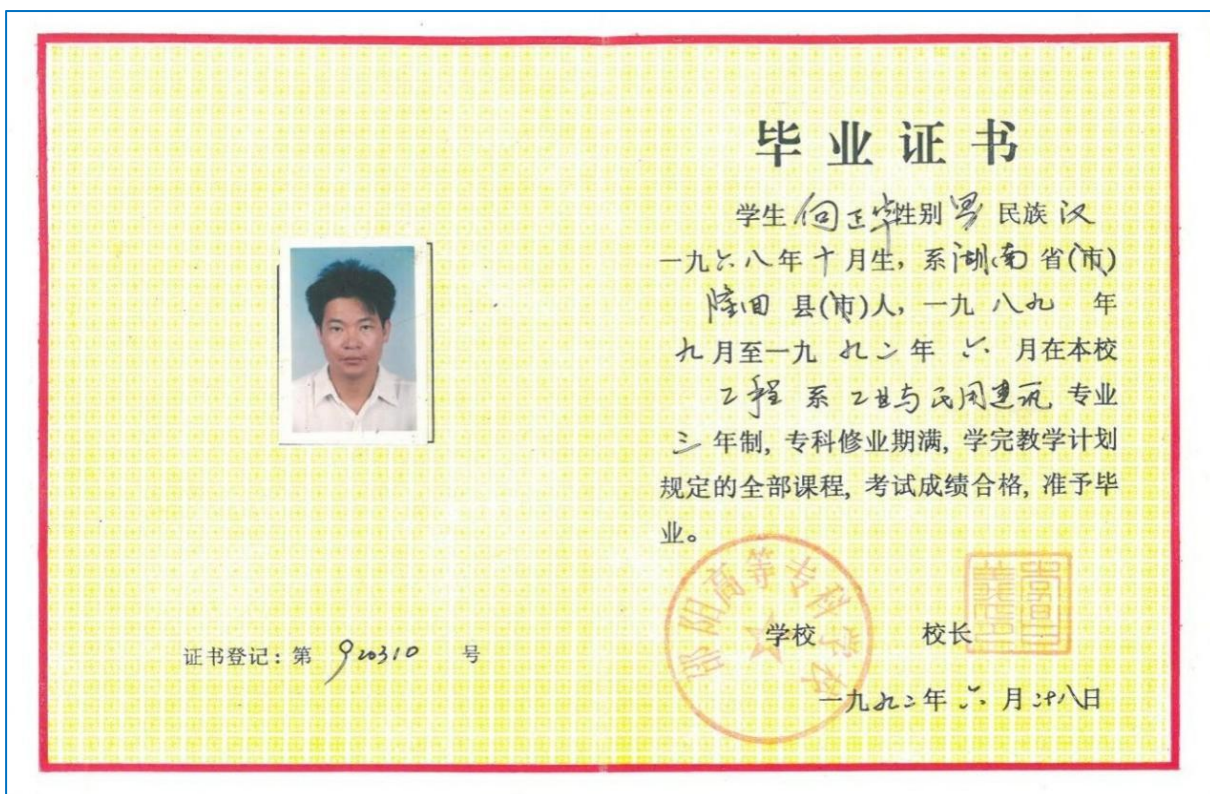 毕业证书
学生 向正华 性别 男 民族 汉
一九六八年十月生, 系湖南省(市)
隆回 县(市)人, 一九八九 年
九月至一九九二年 六 月在本校
工程 系 工业与民用建筑 专业
三 年制, 专科修业期满, 学完教学计划
规定的全部课程, 考试成绩合格, 准予毕
业。
邵阳高等专科学校
学校 校长
一九九二年六月廿八日
证书登记: 第 920310 号